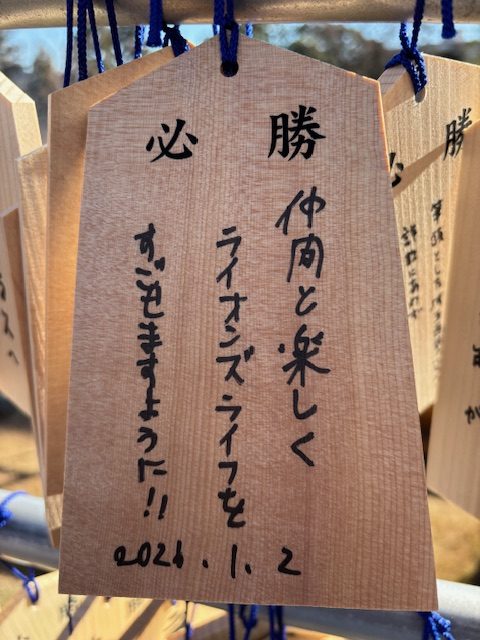 必勝
仲間と楽しく
ライオンズライフを
すごせますように!!
2026.1.2
必勝